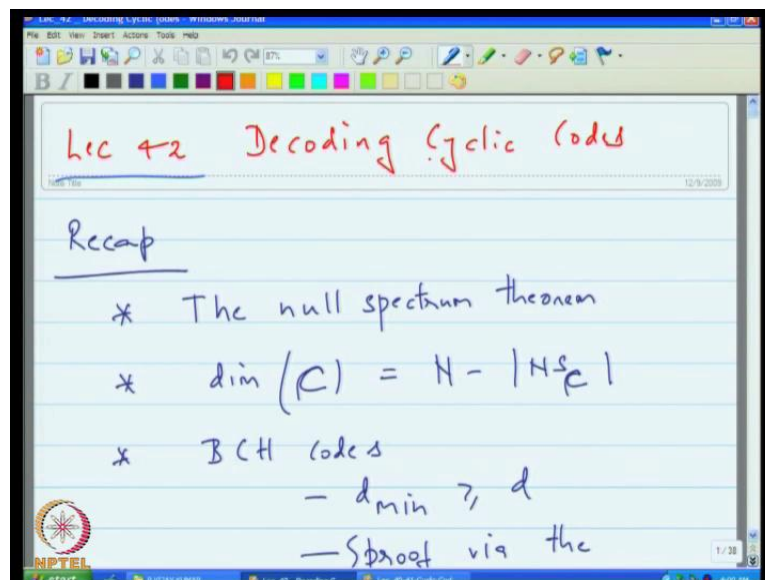 Lec_42 _ Decoding Cyclic Codes - Windows Journal
File Edit View Insert Actions Tools Help
87%
B I
Lec 42 Decoding Cyclic Codes
Note Title
12/9/2009
Recap
* The null spectrum theorem
* dim (C) = N - |NS_C|
* BCH codes
- d_min ≥ d
- proof via the
1 / 38
NPTEL
start